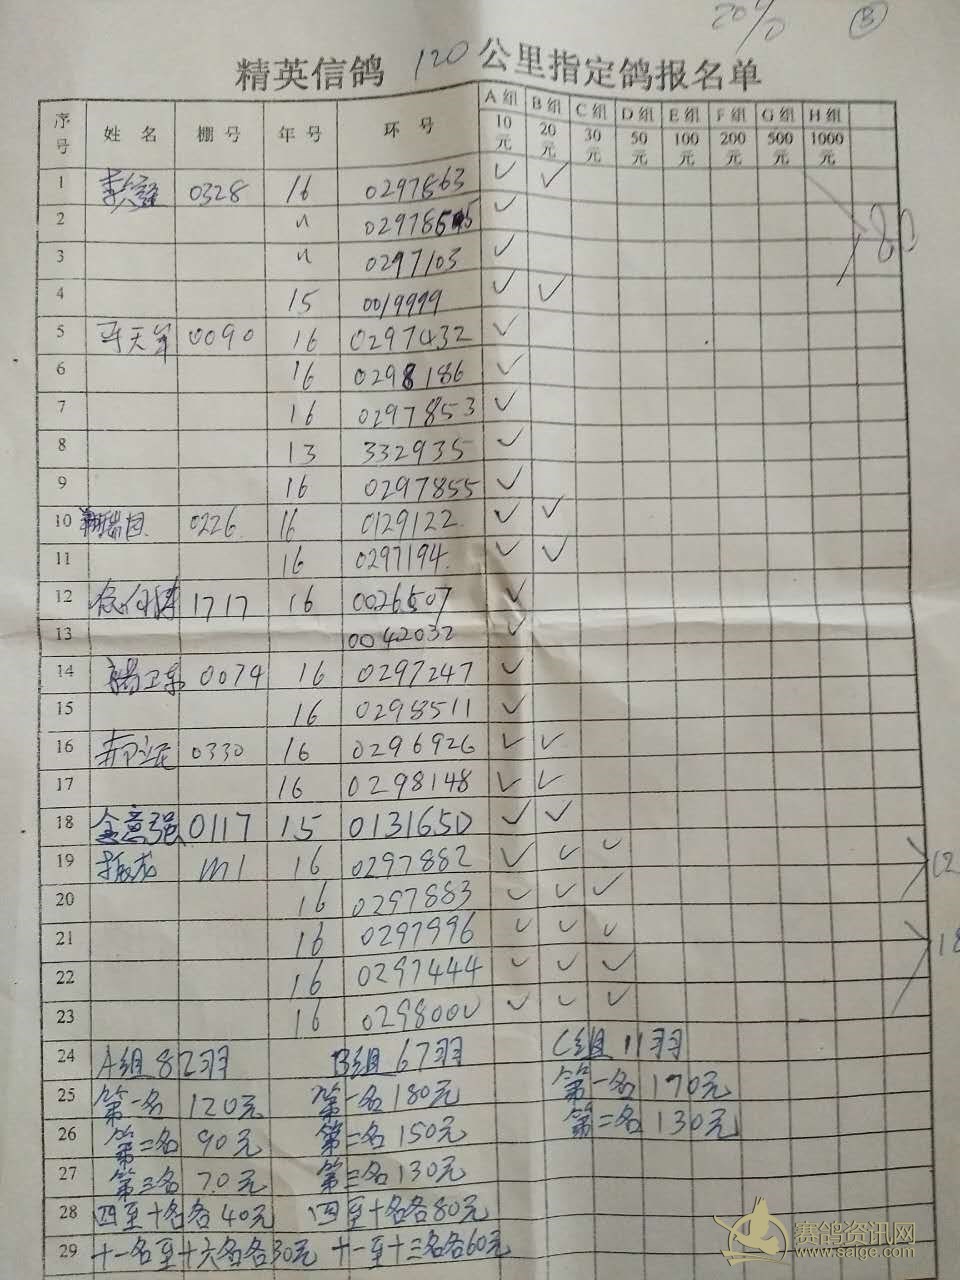 精英信鸽 120 公里指定鸽报名单
序号 姓名 棚号 年号 环号 A组 B组 C组 D组 E组 F组 G组 H组
10元 20元 30元 50元 100元 200元 500元 1000元
1 0328 16 0297863 ✓ ✓
2 〃 ✓
3 〃 0297103 ✓
4 15 0019999 ✓ ✓
80
5 0090 16 0297432 ✓
6 16 0298186 ✓
7 16 0297853 ✓
8 13 332935 ✓
9 16 0297855 ✓
10 0226 16 0129122 ✓ ✓
11 16 0297194 ✓ ✓
12 1717 16 0026507 ✓
13 0042032 ✓
14 0074 16 0297247 ✓
15 16 0298511 ✓
16 0330 16 0296926 ✓ ✓
17 16 0298148 ✓ ✓
18 金意强 0117 15 0131650 ✓ ✓
19 16 0297882 ✓ ✓ ✓
20 16 0297883 ✓ ✓ ✓
21 16 0297996 ✓ ✓ ✓
22 16 0297444 ✓ ✓ ✓
23 16 0298000 ✓ ✓ ✓
24 A组82羽 B组67羽 C组11羽
25 第一名120元 第一名180元 第一名170元
26 第二名90元 第二名150元 第二名130元
27 第三名70元 第三名130元
28 四至十名各40元 四至十名各80元
29 十一名至十六名各30元 十一至十三名各60元
赛鸽资讯网
www.saige.com